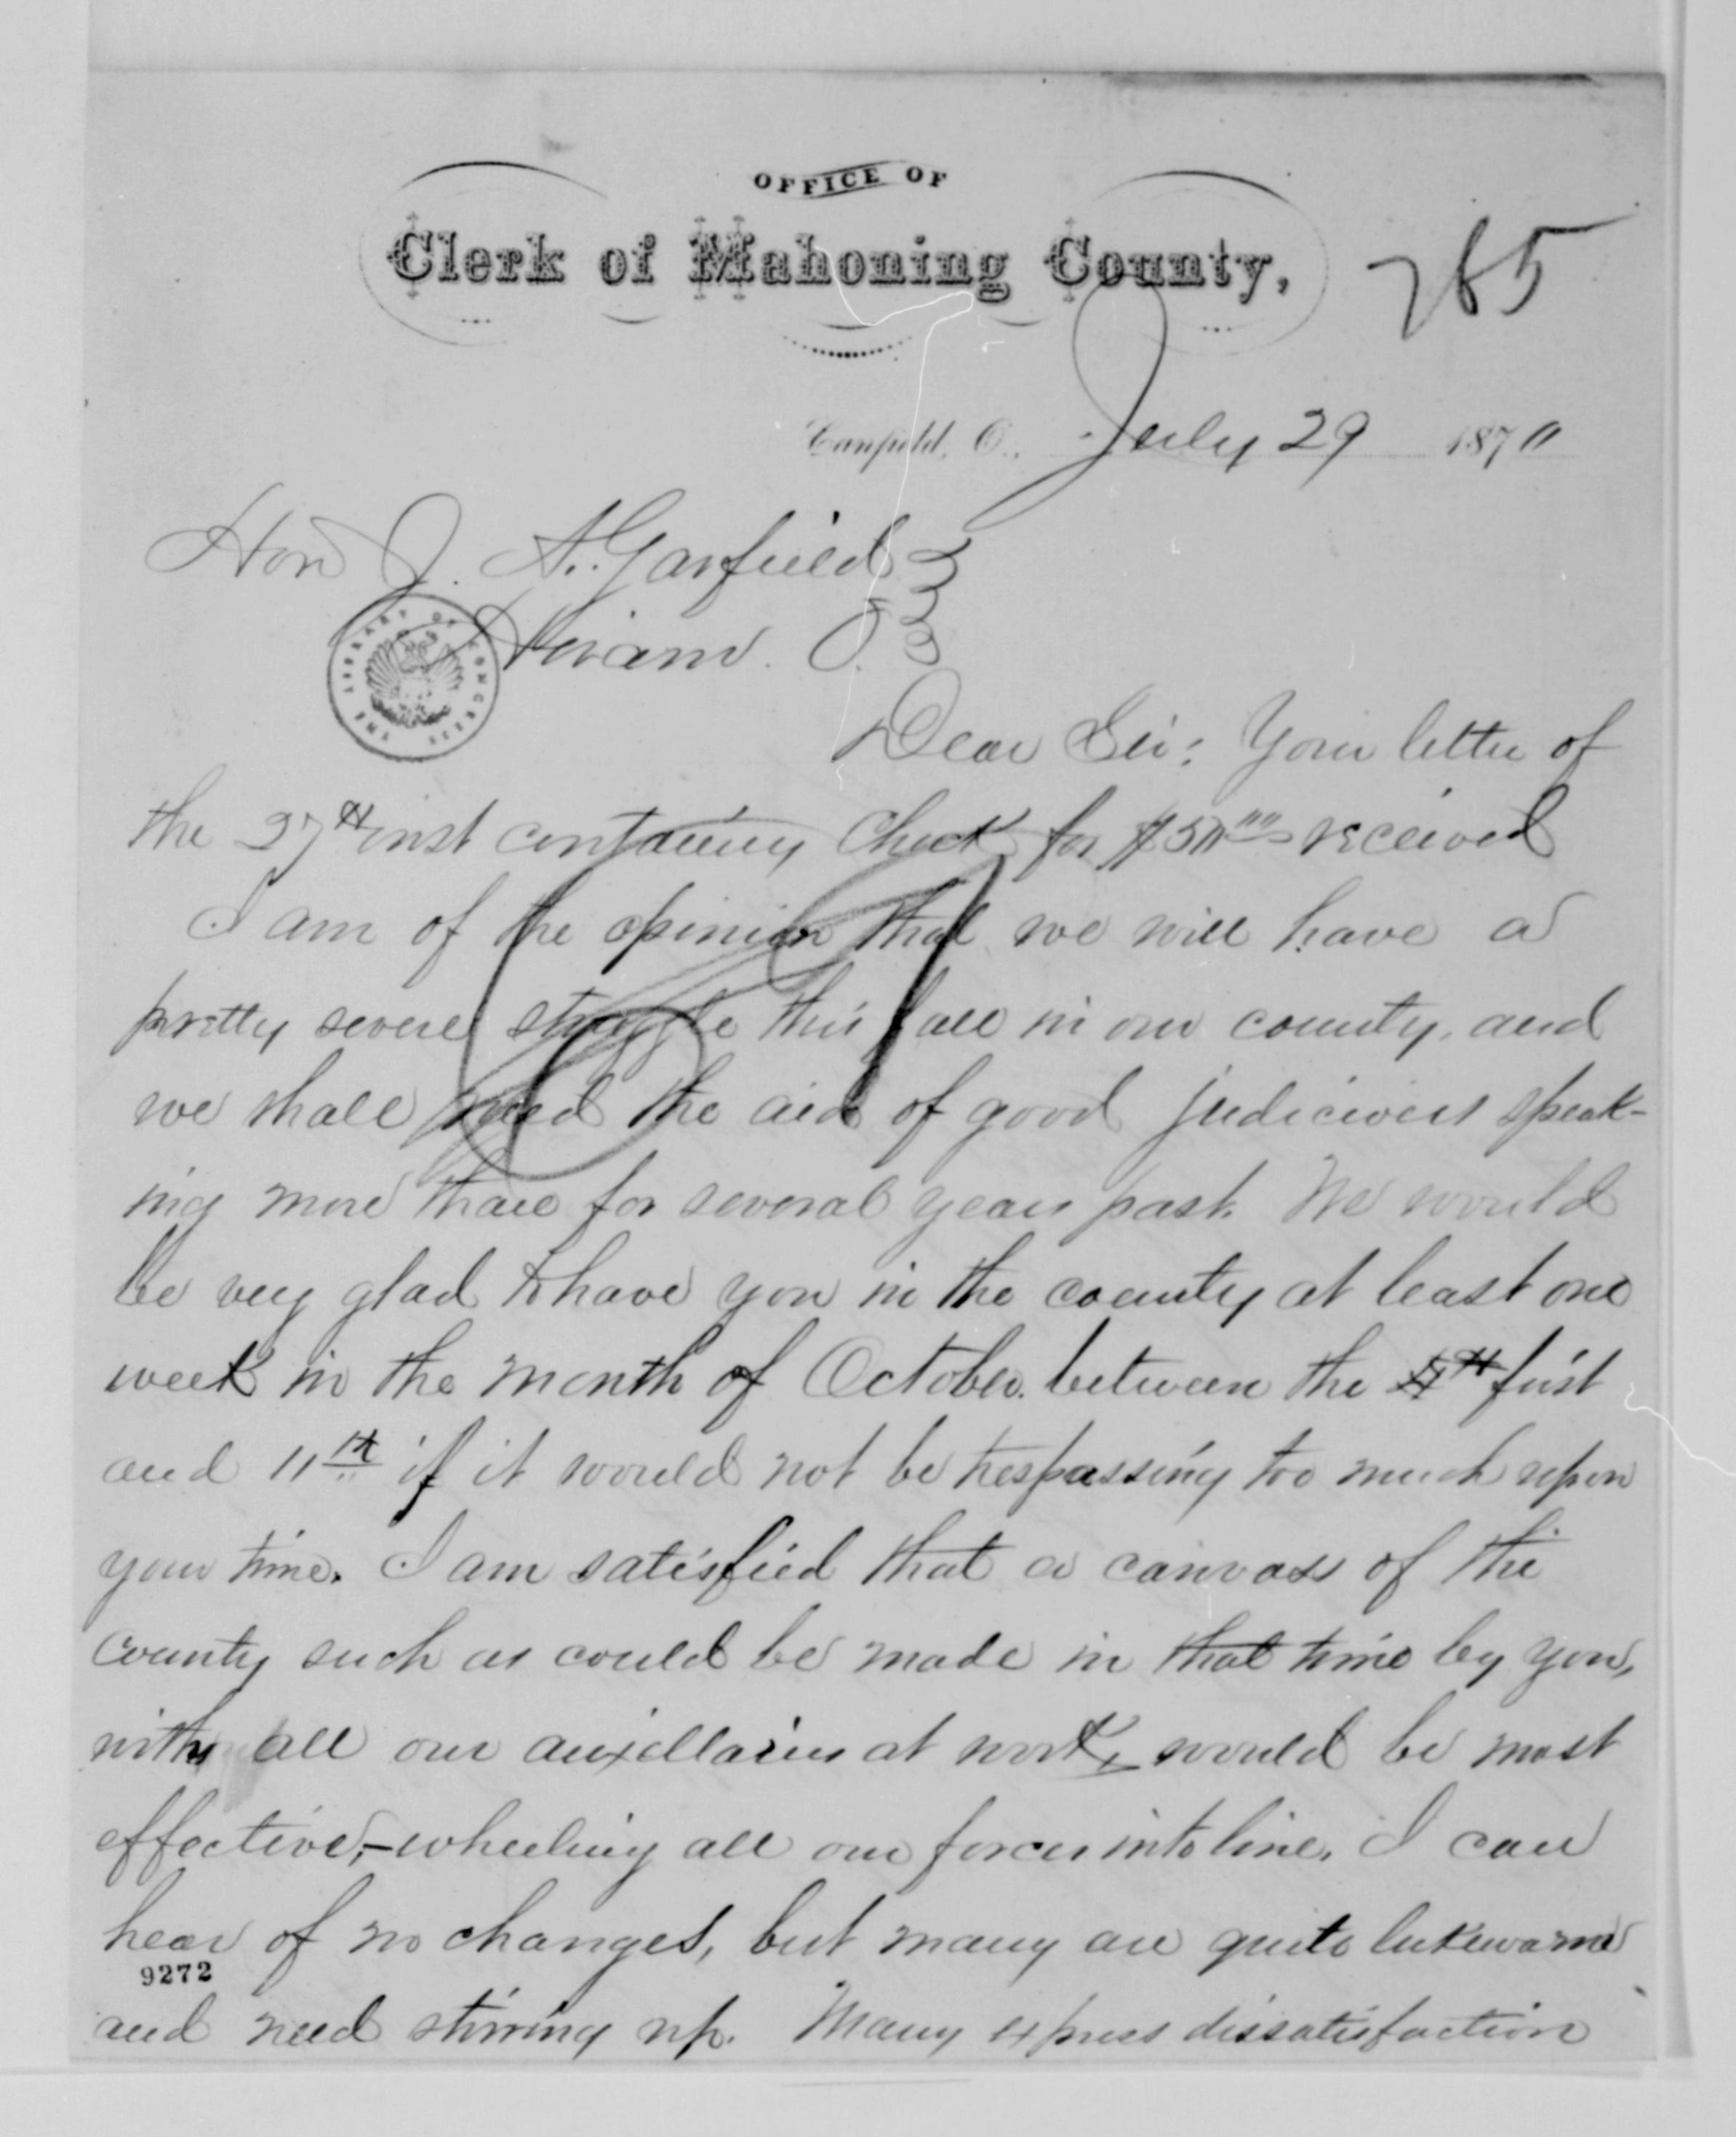 OFFICE OF
Clerk of Mahoning County,
285
Canfield, O., July 29 1870
Hon J. A. Garfield
Hiram. O.
THE LIBRARY OF CONGRESS
Dear Sir: Your letter of
the 27th inst containing check for $50.00 received
I am of the opinion that we will have a
pretty severe struggle this fall in our county, and
we shall need the aid of good judicious speak-
ing more than for several years past. We would
be very glad to have you in the county at least one
week in the month of October between the first
and 11th if it would not be trespassing too much upon
your time. I am satisfied that a canvass of the
County such as could be made in that time by you,
with all our auxillaries at work, would be most
effective,- wheeling all our forces into line. I can
hear of no changes, but many are quite lukewarm
9272
and need stirring up. Many express dissatisfaction